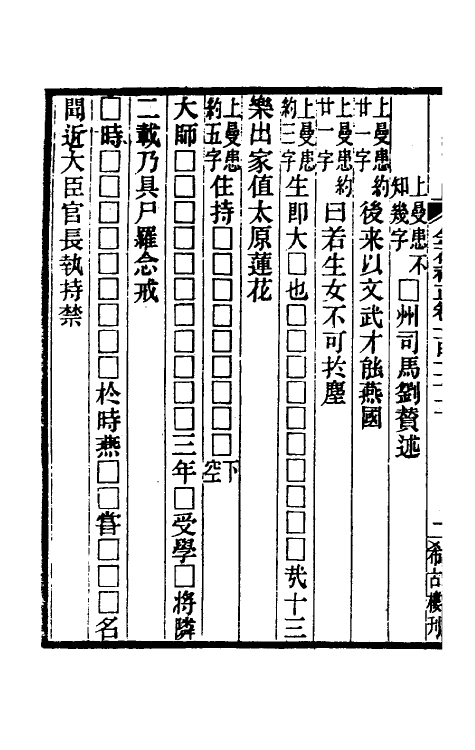 二 希古樓刊
上曼患不知幾字□州司馬劉贊述
上曼患約廿一字後来以文武才能燕國
上曼患約廿一字曰若生女不可扵塵
上曼患約三字生即大□也□□□□□□□□□□㢤十三
樂出家值太原蓮花
上曼患約五字住持□□□□□□□□□下空
大師□□□□□□□□□□□三年□受學□將隣
二載乃具尸羅念戒
□時□□□□□□□□□扵時燕□□嘗□□□名
聞近大臣官長執持禁